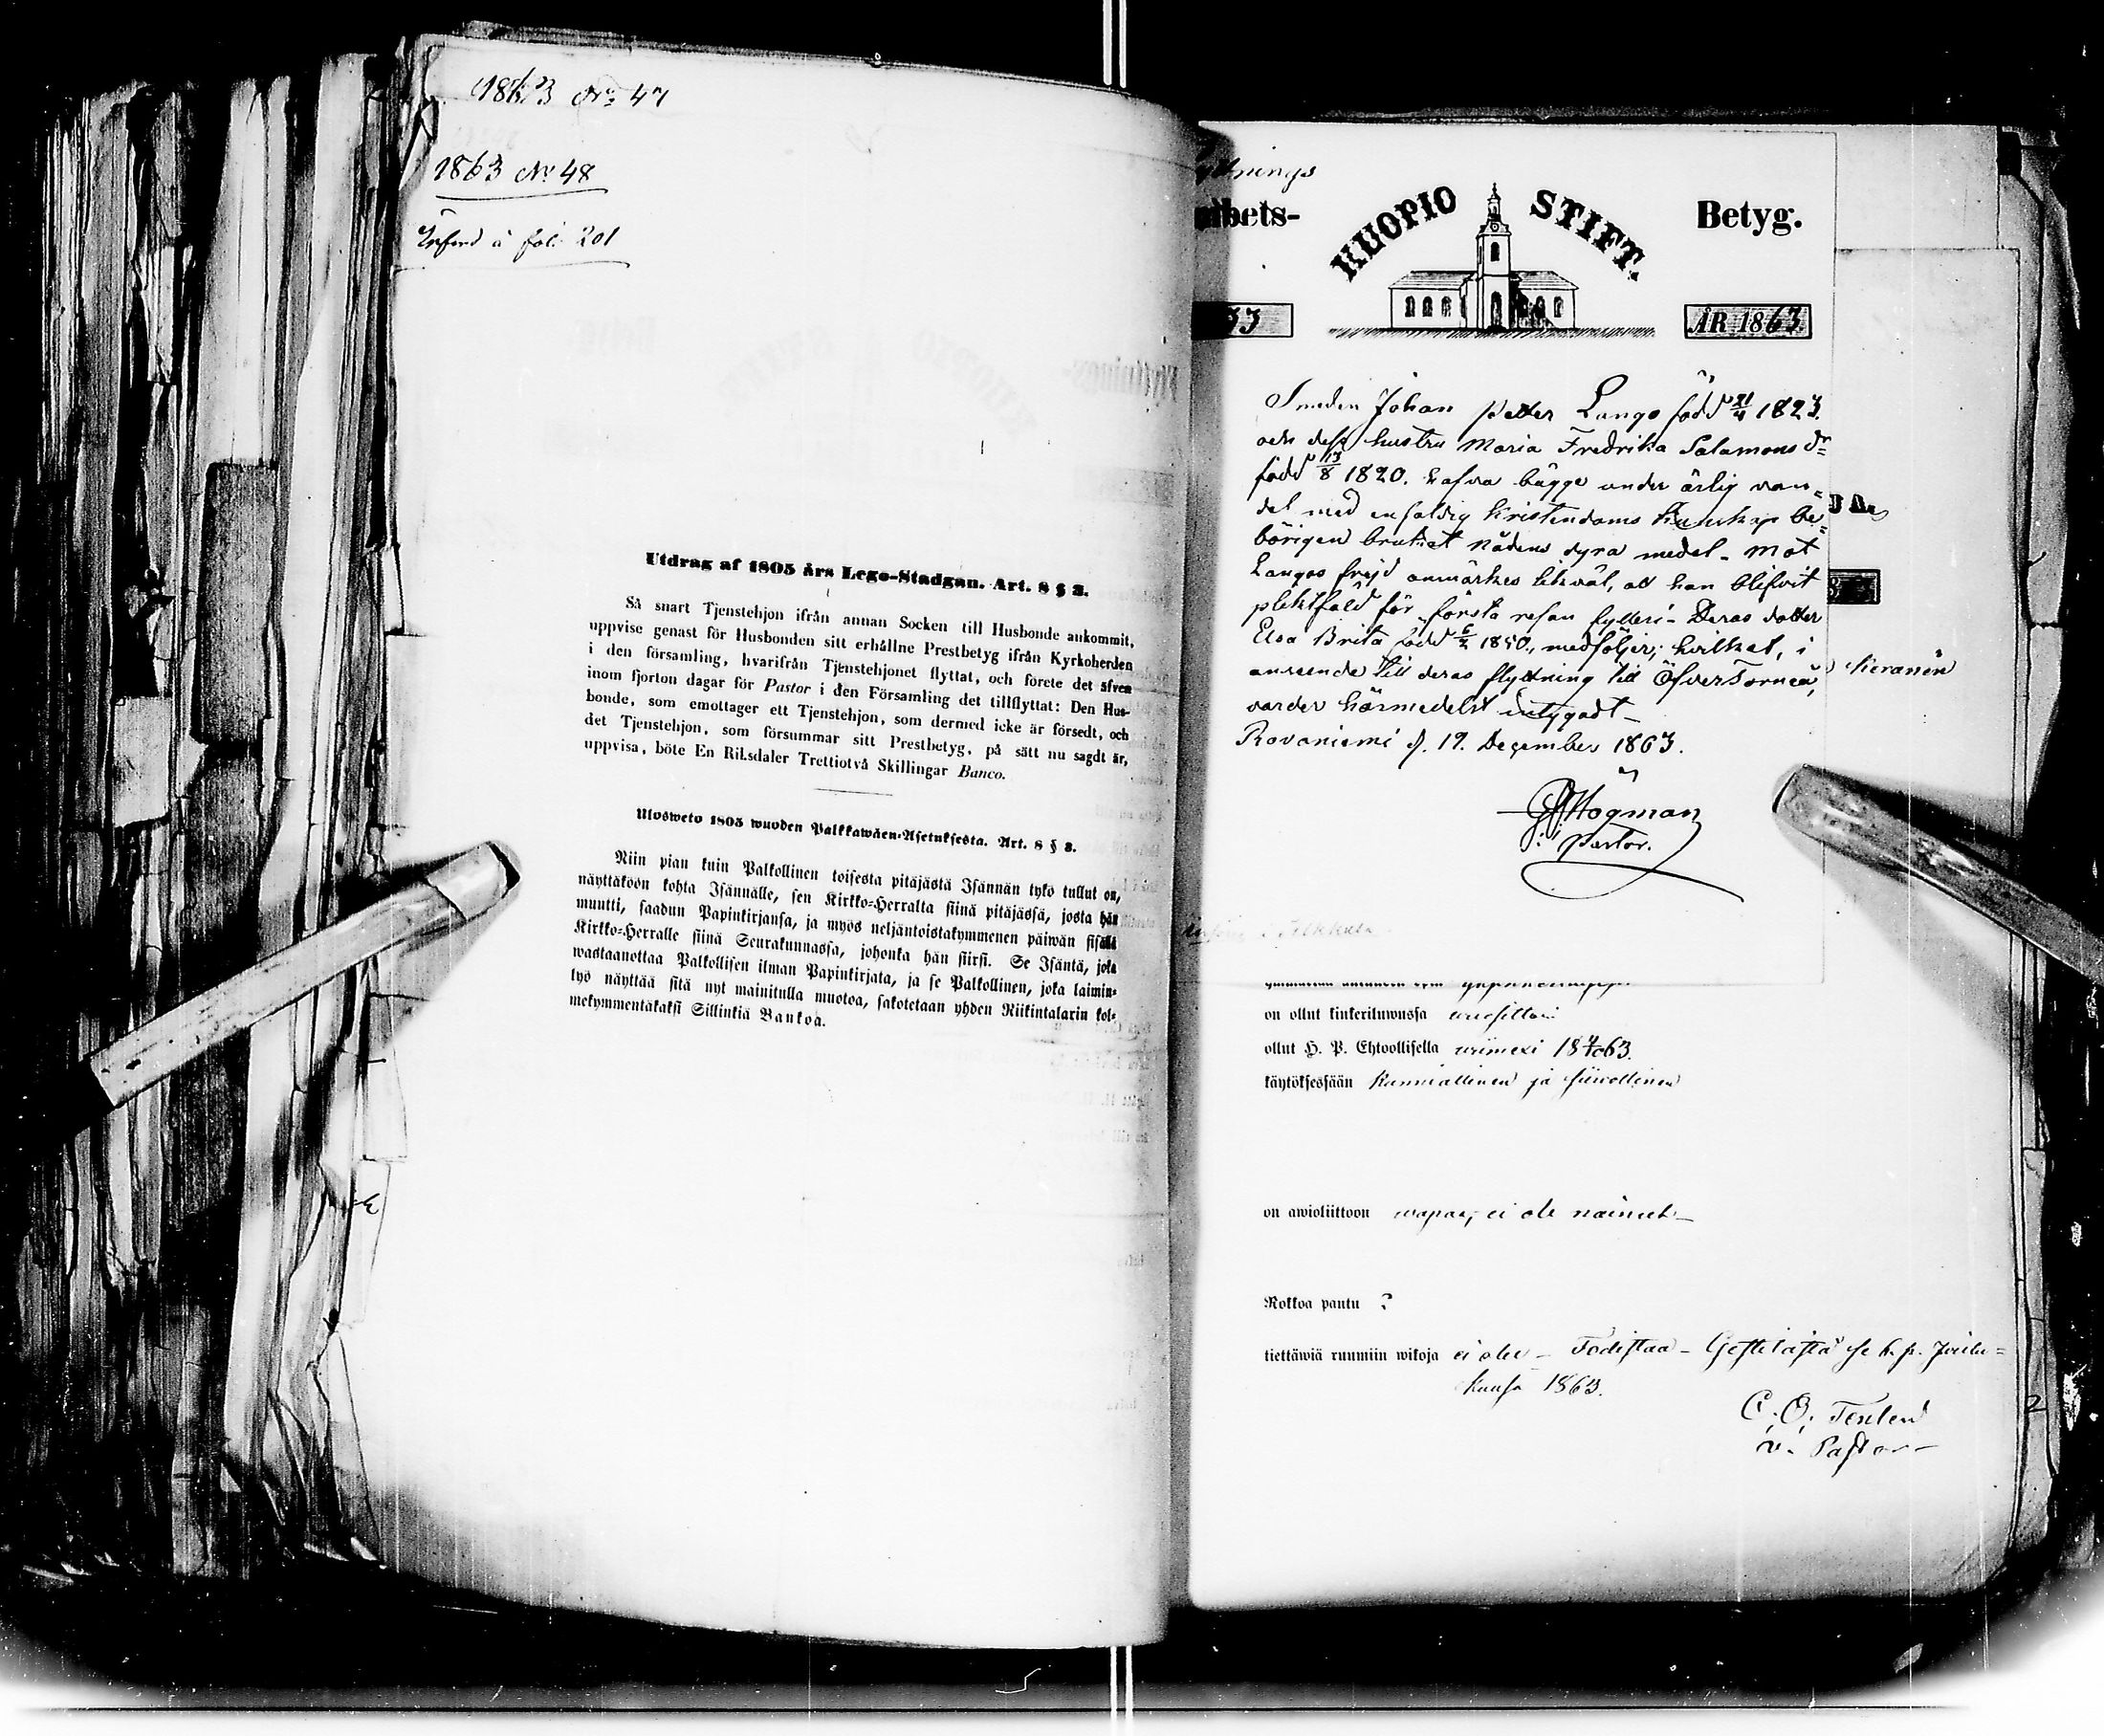 1863 No 47
1863 No 48
Införd å fol. 201
Utdrag af 1805 års Lego-Stadgan. Art. 8 § 3.
Så snart Tjenstehjon ifrån annan Socken till Husbonde ankommit,
uppvise genast för Husbonden sitt erhållne Prestbetyg ifrån Kyrkoherden
i den församling, hvarifrån Tjenstehjonet flyttat, och förete det äfven
inom fjorton dagar för Pastor i den Församling det tillflyttat: Den Hus-
bonde, som emottager ett Tjenstehjon, som dermed icke är försedt, och
det Tjenstehjon, som försummar sitt Prestbetyg, på sätt nu sagdt är,
uppvisa, böte En Riksdaler Trettiotvå Skillingar Banco.
Ulosweto 1805 wuoden Palkkawäen-Asetuksesta. Art. 8 § 3.
Niin pian kuin Palkollinen toisesta pitäjästä Isännän tykö tullut on,
näyttäköön kohta Isännälle, sen Kirkko-Herralta siinä pitäjässä, josta hän
muutti, saadun Papinkirjansa, ja myös neljäntoistakymmenen päiwän sisällä
Kirkko-Herralle siinä Seurakunnassa, johonka hän siirsi. Se Isäntä, joka
wastaanottaa Palkollisen ilman Papinkirjata, ja se Palkollinen, joka laimin-
lyö näyttää sitä nyt mainitulla muotoa, sakotetaan yhden Riikintalarin kol-
mekymmentäkaksi Sillinkiä Bankoa.
ttnings
bets-
KUOPIO STIFT.
Betyg.
33
ÅR 1863
Smeden Johan Petter Lango född 21/4 1823.
och dess hustru Maria Fredrika Salamons dr
född 13/8 1820. hafva bägge under ärlig van-
del med enfaldig Kristendoms Kunskap be-
hörigen brukat nådens dyra medel - Mot
Langos frejd anmärkes likväl, att han blifvit
pliktfäld för första resan fylleri - Deras dotter
Elsa Brita född 6/2 1850, medföljer; hvilket, i
anseende till deras flyttning till ÖfverTorneå,
varder härmedelst intygadt -
Rovaniemi d. 19. December 1863.
Högman
Pastor.
Keranen
on ollut kinkeriluwussa
ollut H. P. Ehtoollisella wiimexi 18 63.
käytöksessään kunniallinen ja siiwollinen
on awioliittoon wapaa, ei ole nainut -
Rokkoa pantu ?
tiettäwiä ruumiin wikoja ei ole - Todistaa - Joulu-
kuusa 1863.
C. O.
v. Pastor
2